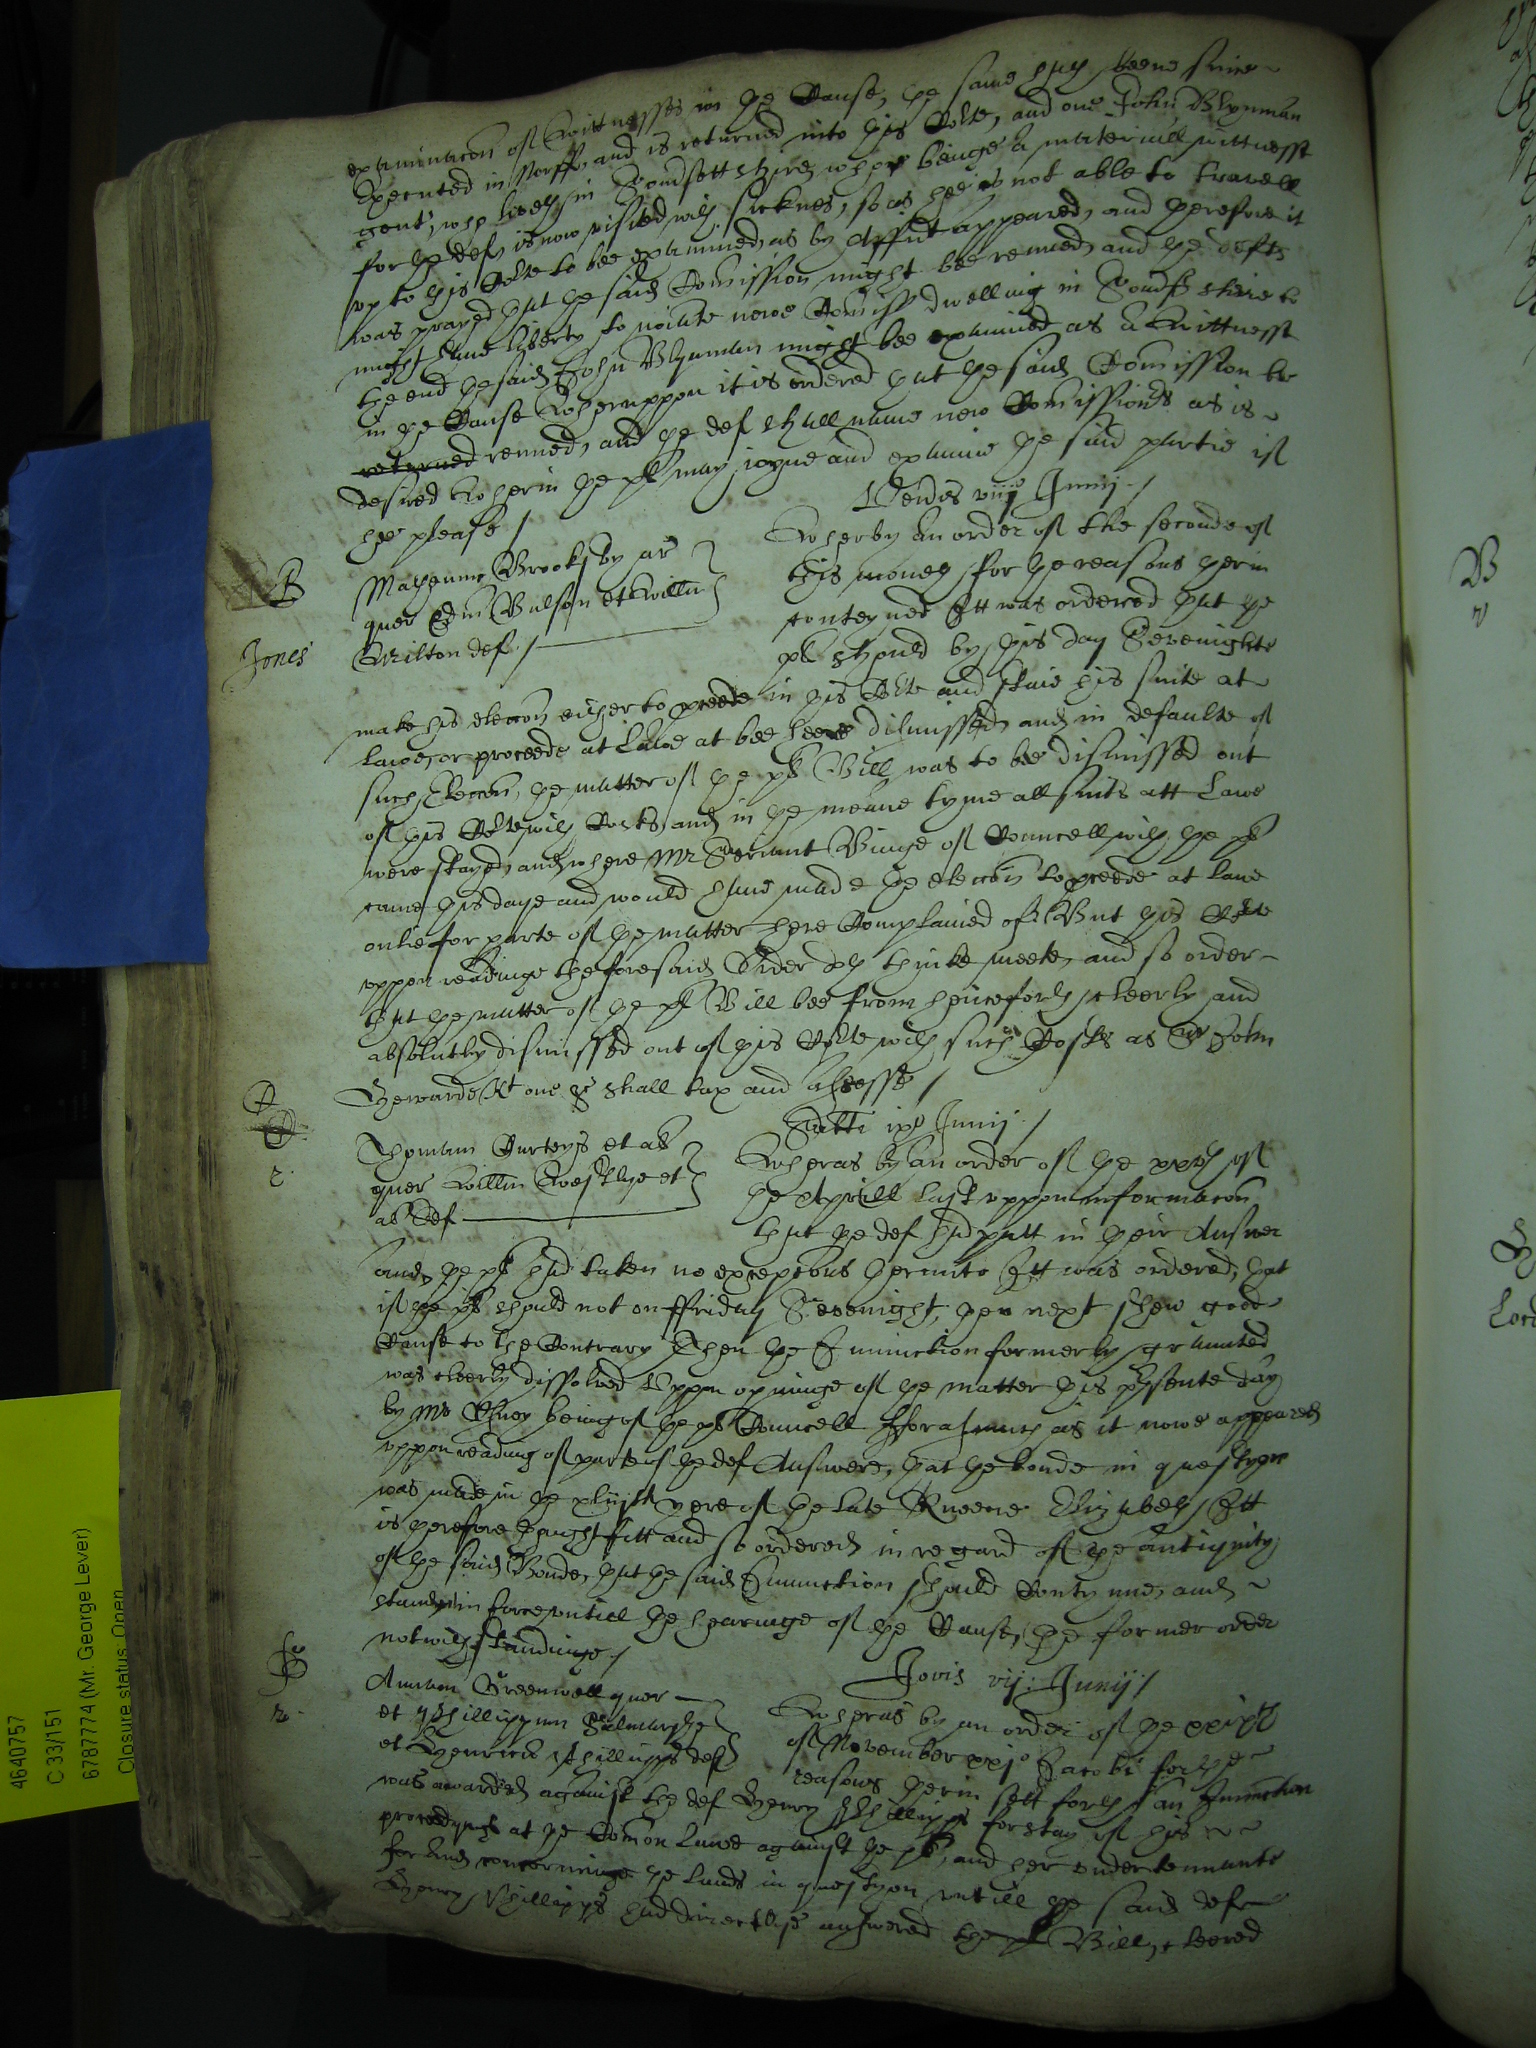 examinacon of Wittnesses in the Cause, the same hath beene since
Executed in Norff and is returned into this Co:rte, and one John Blynman
gent, who liveth in Somersettshire, who beinge a materiall wittnesse
for the def is now visited with sicknes, so as hee is not able to travell
vp to this Co:rte to bee examined, as by Affid:t appeared, and therefore it
was prayed that the said Comission might bee renued, and the defts
might have liberty to no:iate newe Comiss:rs dwelling in shire to
the end the said John Blynman might bee examined as a Wittnesse
in the Cause Wheruppon it is ordered that the said Comission be
returned renued, and the def shall name new Comissioners as is
desired Wherin the pl may ioyne and examine the said partie if
hee please /
Veneris viij Junij /
B
Jones
Brooksby ar
quer Edm et Willm
Wilton def /
Wherby an order of the seconde of
this moneth for the reasons therin
conteyned Itt was ordered that the
pl should by this day Sevenighte
make his eleccon either to proceede in this Co:rte and staie his suite at
lawe, or proceede at Lawe at bee heere dismissed, and in defaulte of
such Eleccon, the matter of the pls Bill was to be dismissed out
of this Co:rte with Costs, and in the meane tyme all suits att Lawe
were stayed, and where Mr Seriant of Councell with the pl
came this daye and would have made the eleccon to proceede at lawe
onlie for parte of the matter here Complained of But this Co:rte
vppon readinge the foresaid Order doth thinke meete, and so order
that the matter of the pls Bill bee from henceforth cleerly and
absolutly dismissed out of this Co:rte with such Costs as Sr John
kt one &c shall tax and assesse /
Sabbti ix Junij /
Thomam Curteys et al
quer Willm et
al def
Wheras by an order of the xxth of
the Aprill last vppon informacon
that the def had putt in their Answer
and the pls had taken no excepcons therunto Itt was ordered, that
if the pls should not on ffriday Sevenight then next shew good
Cause to the Contrary Then the Iniunction formerly graunted
was cleerly dissolved Vppon openinge of the matter this p:rsente day
by Mr being of the pls Councell fforasmuch as it nowe appeared
vppon reading of parte of the def Answere, that the bonde in questyon
was made in the yere of the late Queene Elizabeth Itt
is therefore thought fitt and so ordered in regard of the antiquity
of the said Bonde, that the said Iniunction should Contynue, and
stand in force vntill the hearinge of the Cause, the former order
notwithstandinge /
Jovis vij Junij /
Annam Greenwell quer
et Phillippum
et Henricu Phillipps def
Wheras by an order of the xxixth
of November xxj:o Jacobi for the
reasons therin sett forth an Iniunction
was awarded against the def Henry Phillipps for stay of his
proceedyngs at the Comon Lawe against the pl, and her vndertennants
for and concerninge the lands in questyon vntill the said def
Henry Phillipps had directlye answered the pl Bill, cleered
B
4640757
C 33/151
6787774 (Mr. George Lever)
Closure status: Open